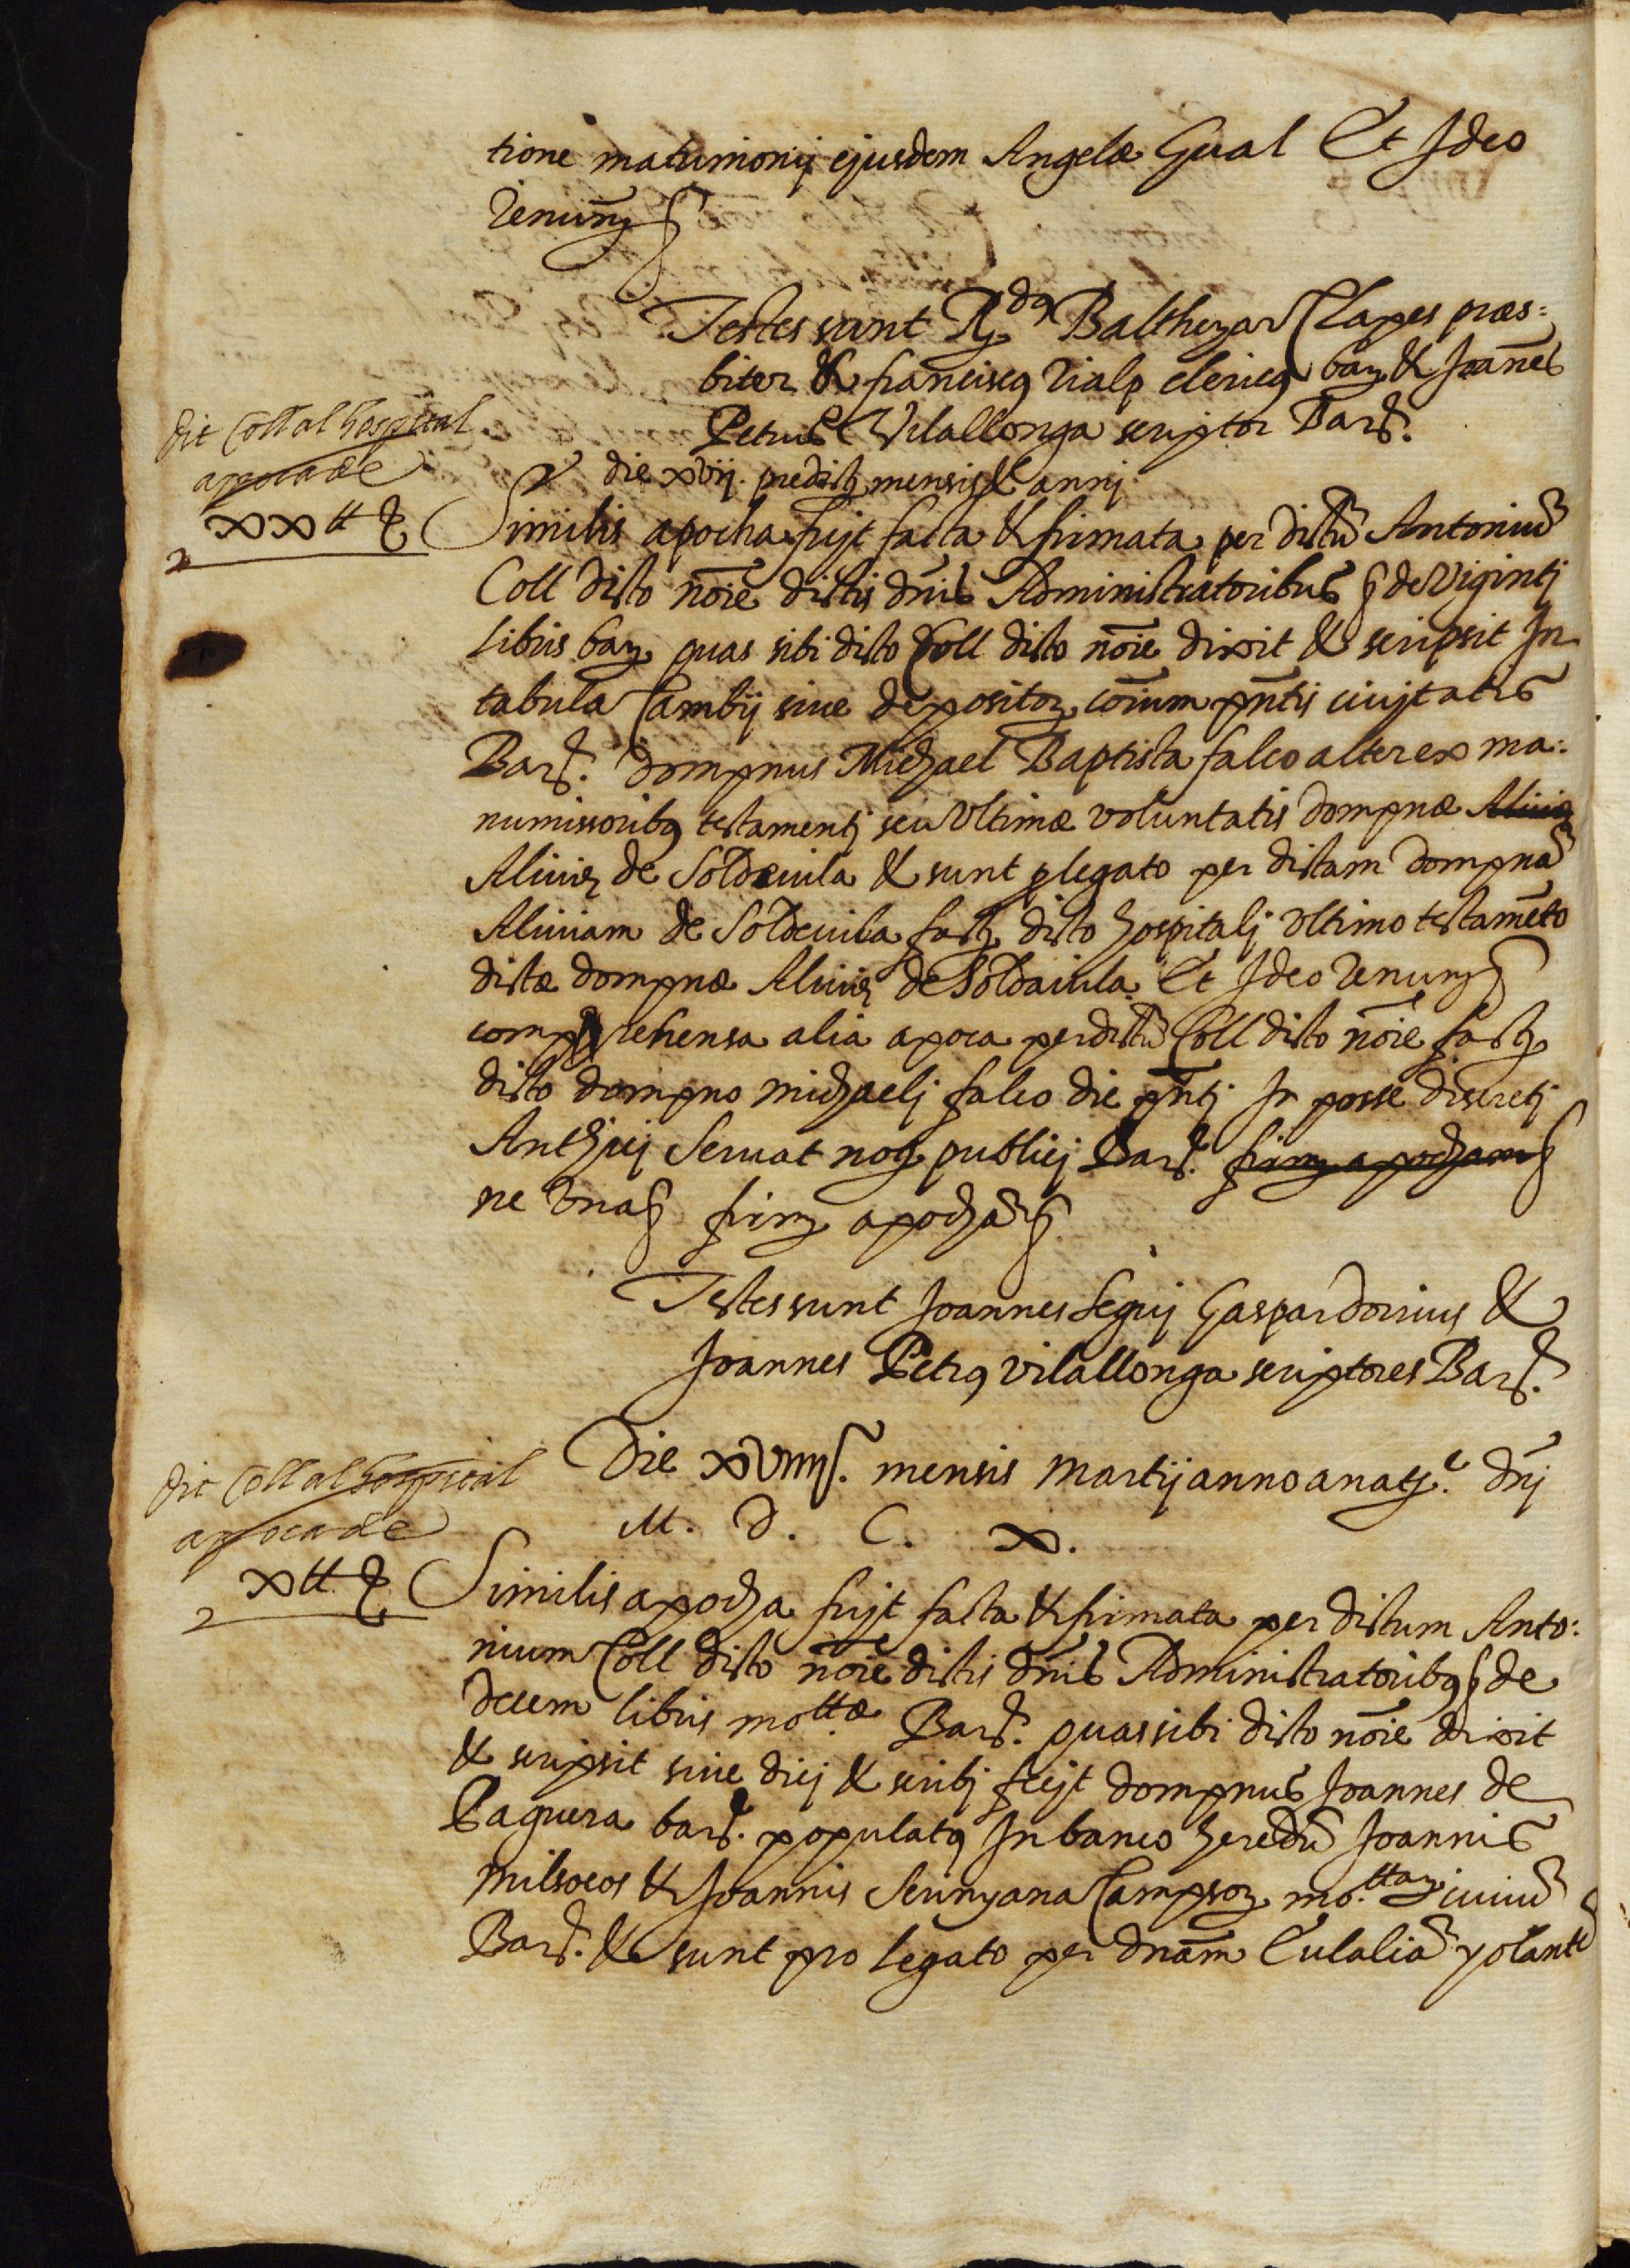 tione matrimonij ejusdem Angelæ Gual Et Ideo
Renunȝ &
Testes sunt Rdꝰ Balthezar Clapes præs:
biter & franciscꝰ Vialp clericꝰ barꝫ & Joanēs
Petrus Vilallonga scriptor Barȝ.
dit Coll al hospital
apoca de
xx tt
die xvij. predictj mensis & annj
Similis apocha fujt facta & firmata per dictũ Antoniũ
Coll dicto noīe dictis dnīs Administratoribus & de Vigintj
libris barꝫ quas sibi dicto Coll dicto noīe dixit & scripsit In
tabula Cambij siue depositorꝫ coīum pn̄tis ciujtatis
Barȝ. dompnus Michael Baptista falco alter ex ma:
numissoribꝰ testamentj seu Vltimæ voluntatis dompnæ Aliuiæ
Aliuię de Soldeuila & sunt ꝓ legato per dictam dompnã
Aliuiam de Soldeuila factꝫ dicto hospitalj Vltimo testamẽto
dictæ dompnæ Aliuię de Soldauila Et Ideo Renunȝ &
comprehensa alia apoca per dictũ Coll dicto noīe factꝫ
dicto dompno michaelj falco die pn̄tj In posse discretj
Anthicj Seruat notȝ publicj Barȝ. firmȝ apocham &
ne Vna & firmȝ apochã &
Testes sunt Joannes Seguj Gaspar Dorius &
Joannes Petrꝰ vilallonga scriptores Barȝ.
Die xviiij. mensis Martij anno a natȝ.e dnj̄
M. D. C. x.
dit Coll al hospital
apoca de
x tt
Similis apocha fujt facta & firmata per dictum Anto:
nium Coll dicto noīe dictis dnīs Administratoribꝰ & de
decem libris mo.ttæ Barȝ. quas sibi dicto noīe dixit
& scripsit siue dicj & scribj fecjt dompnus Joannes de
Paguera barȝ. populatꝰ In banco heredũ Joannis
milsocos & Joannis Serinyana Campsorꝫ mo.ttarꝫ ciuiũ
Barȝ. & sunt pro legato per dnām Eulaliã yolantẽ